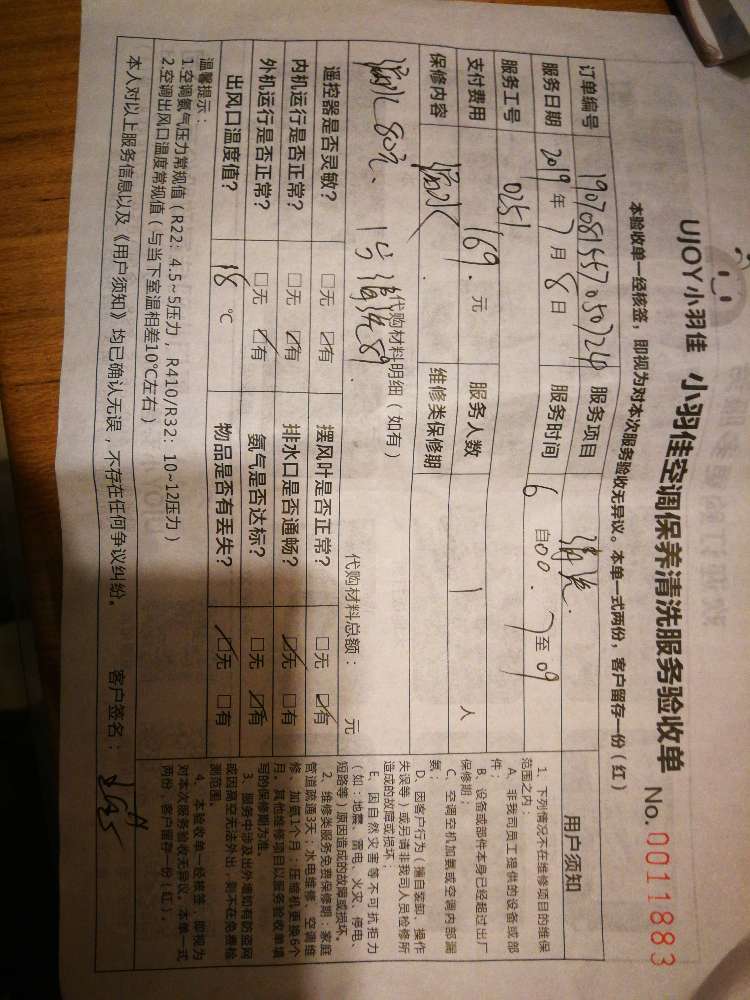 UJOY小羽佳 小羽佳空调保养清洗服务验收单 No.0011883
本验收单一经核签，即视为对本次服务验收无异议。本单一式两份，客户留存一份（红）
订单编号 服务项目 清洗
服务日期 2019年7月8日 服务时间 自 至
服务工号 0251
支付费用 169.元 服务人数 1 人
保修内容 维修类保修期
代购材料明细（如有）
代购材料总额： 元
遥控器是否灵敏？ □无 ☑有 摆风叶是否正常？ □无 ☑有
内机运行是否正常？ □无 ☑有 排水口是否通畅？ ☑无 □有
外机运行是否正常？ □无 ☑有 氨气是否达标？ □无 ☑有
出风口温度值？ 18 ℃ 物品是否有丢失？ ☑无 □有
温馨提示：
1.空调氨气压力常规值（R22：4.5~5压力，R410/R32：10~12压力）
2.空调出风口温度常规值（与当下室温相差10℃左右）
本人对以上服务信息以及《用户须知》均已确认无误，不存在任何争议纠纷。 客户签名：
用户须知
1、下列情况不在维修项目的维保
范围之内：
A、非我司员工提供的设备或部
件；
B、设备或部件本身已经超过出厂
保修期；
C、空调空机加氨或空调内部漏
氨；
D、因客户行为（擅自装卸、操作
失误等）或另请非我司人员检修所
造成的故障或损坏；
E、因自然灾害等不可抗拒力
（如：地震、雷电、火灾、停电、
短路等）原因造成的故障或损坏。
2、维修类服务免费保修期：家庭
管道疏通3天；水电维修、空调维
修、加氨1个月；压缩机更换6个
月。其他维修项目以服务验收单填
写的保修期为准。
3、服务中涉及出外墙如有防盗网
或因高空无法外出，则不在免费检
测范围。
4、本验收单一经核签，即视为
对本次服务验收无异议。本单一式
两份，客户留存一份（红）。